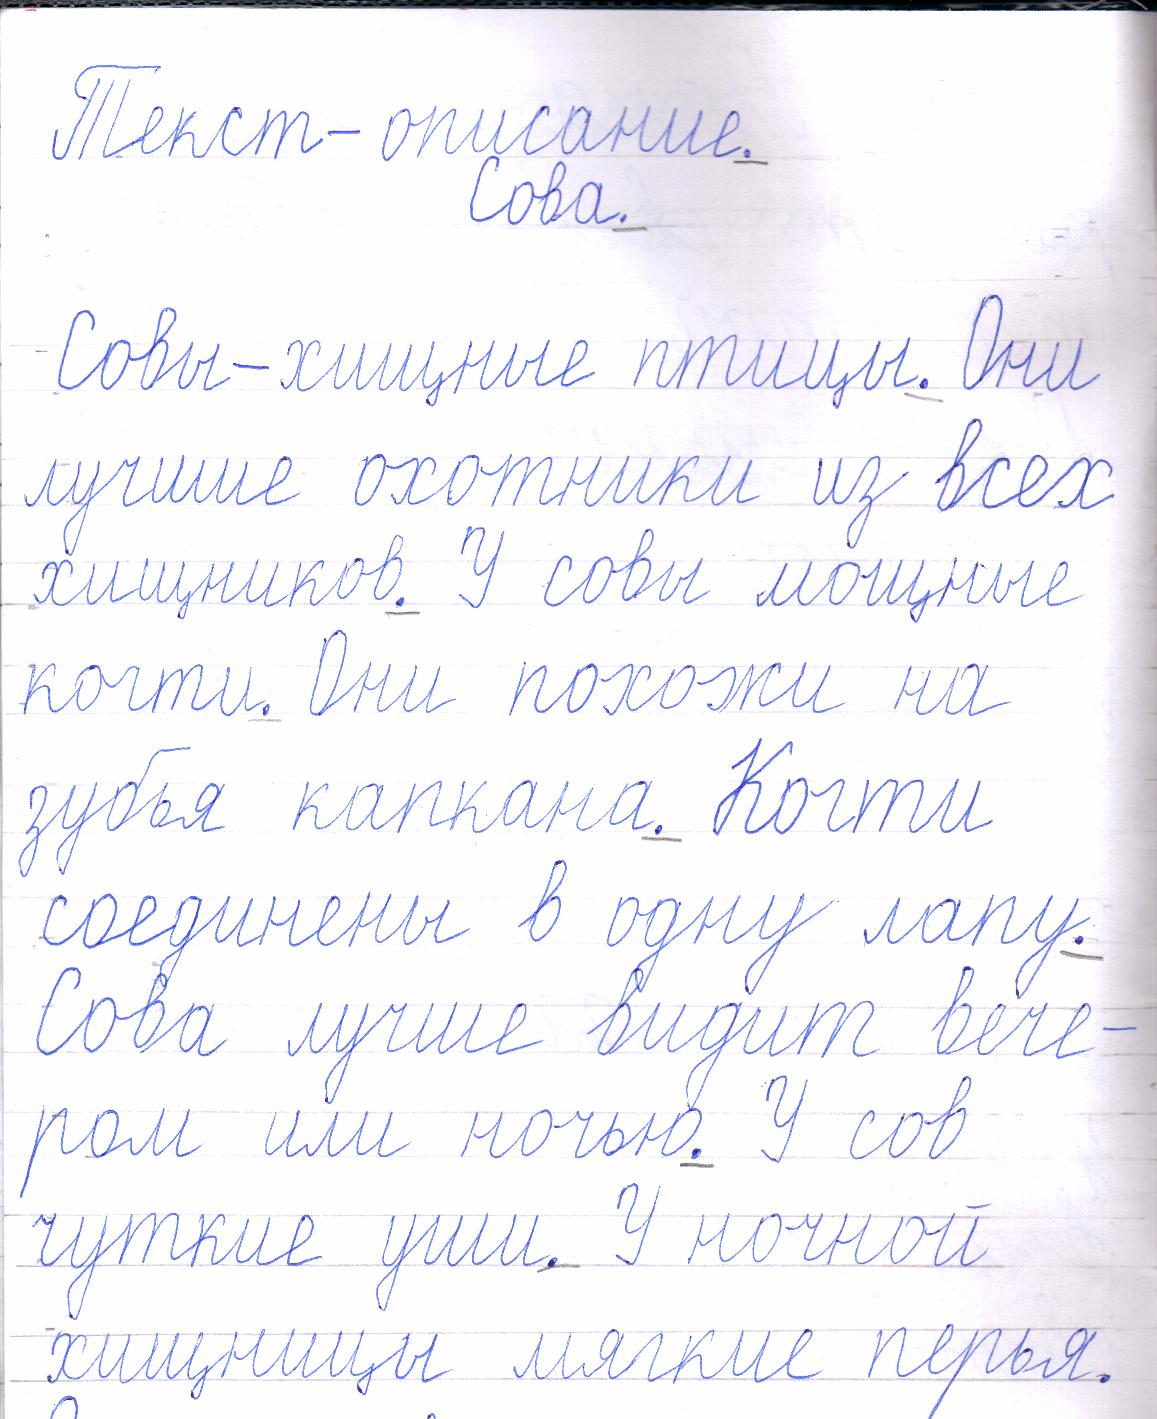 Текст-описание.
Сова.
Совы-хищные птицы. Они
лучшие охотники из всех
хищников. У совы мощные
когти. Они похожи на
зубья капкана. Когти
соединены в одну лапу.
Сова лучше видит вече-
ром или ночью. У сов
чуткие уши. У ночной
хищницы мягкие перья.